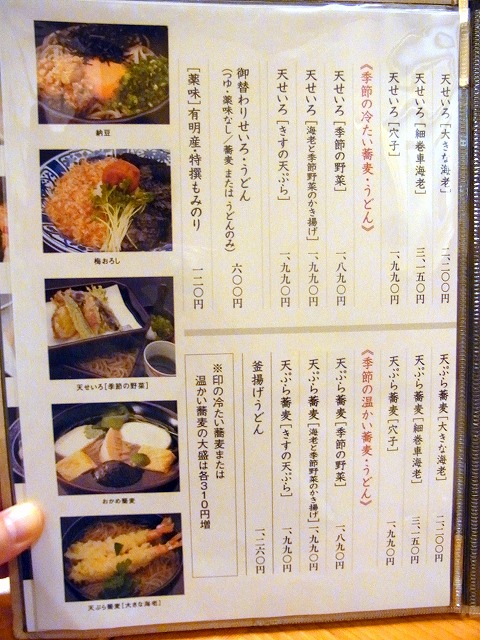 天せいろ［大きな海老］ 二、二〇〇円
天せいろ［細巻車海老］ 三、一五〇円
天せいろ［穴子］ 一、九九〇円
《季節の冷たい蕎麦・うどん》
天せいろ［季節の野菜］ 一、八九〇円
天せいろ［海老と季節野菜のかき揚げ］ 一、九九〇円
天せいろ［きすの天ぷら］ 一、九九〇円
御替わりせいろ・うどん 六〇〇円
（つゆ・薬味なし／蕎麦 または うどんのみ）
［薬味］有明産・特撰もみのり 一二〇円
天ぷら蕎麦［大きな海老］ 二、二〇〇円
天ぷら蕎麦［細巻車海老］ 三、一五〇円
天ぷら蕎麦［穴子］ 一、九九〇円
《季節の温かい蕎麦・うどん》
天ぷら蕎麦［季節の野菜］ 一、八九〇円
天ぷら蕎麦［海老と季節野菜のかき揚げ］ 一、九九〇円
天ぷら蕎麦［きすの天ぷら］ 一、九九〇円
釜揚げうどん 一、二六〇円
※印の冷たい蕎麦または
温かい蕎麦の大盛は各310円増
納豆
梅おろし
天せいろ［季節の野菜］
おかめ蕎麦
天ぷら蕎麦［大きな海老］